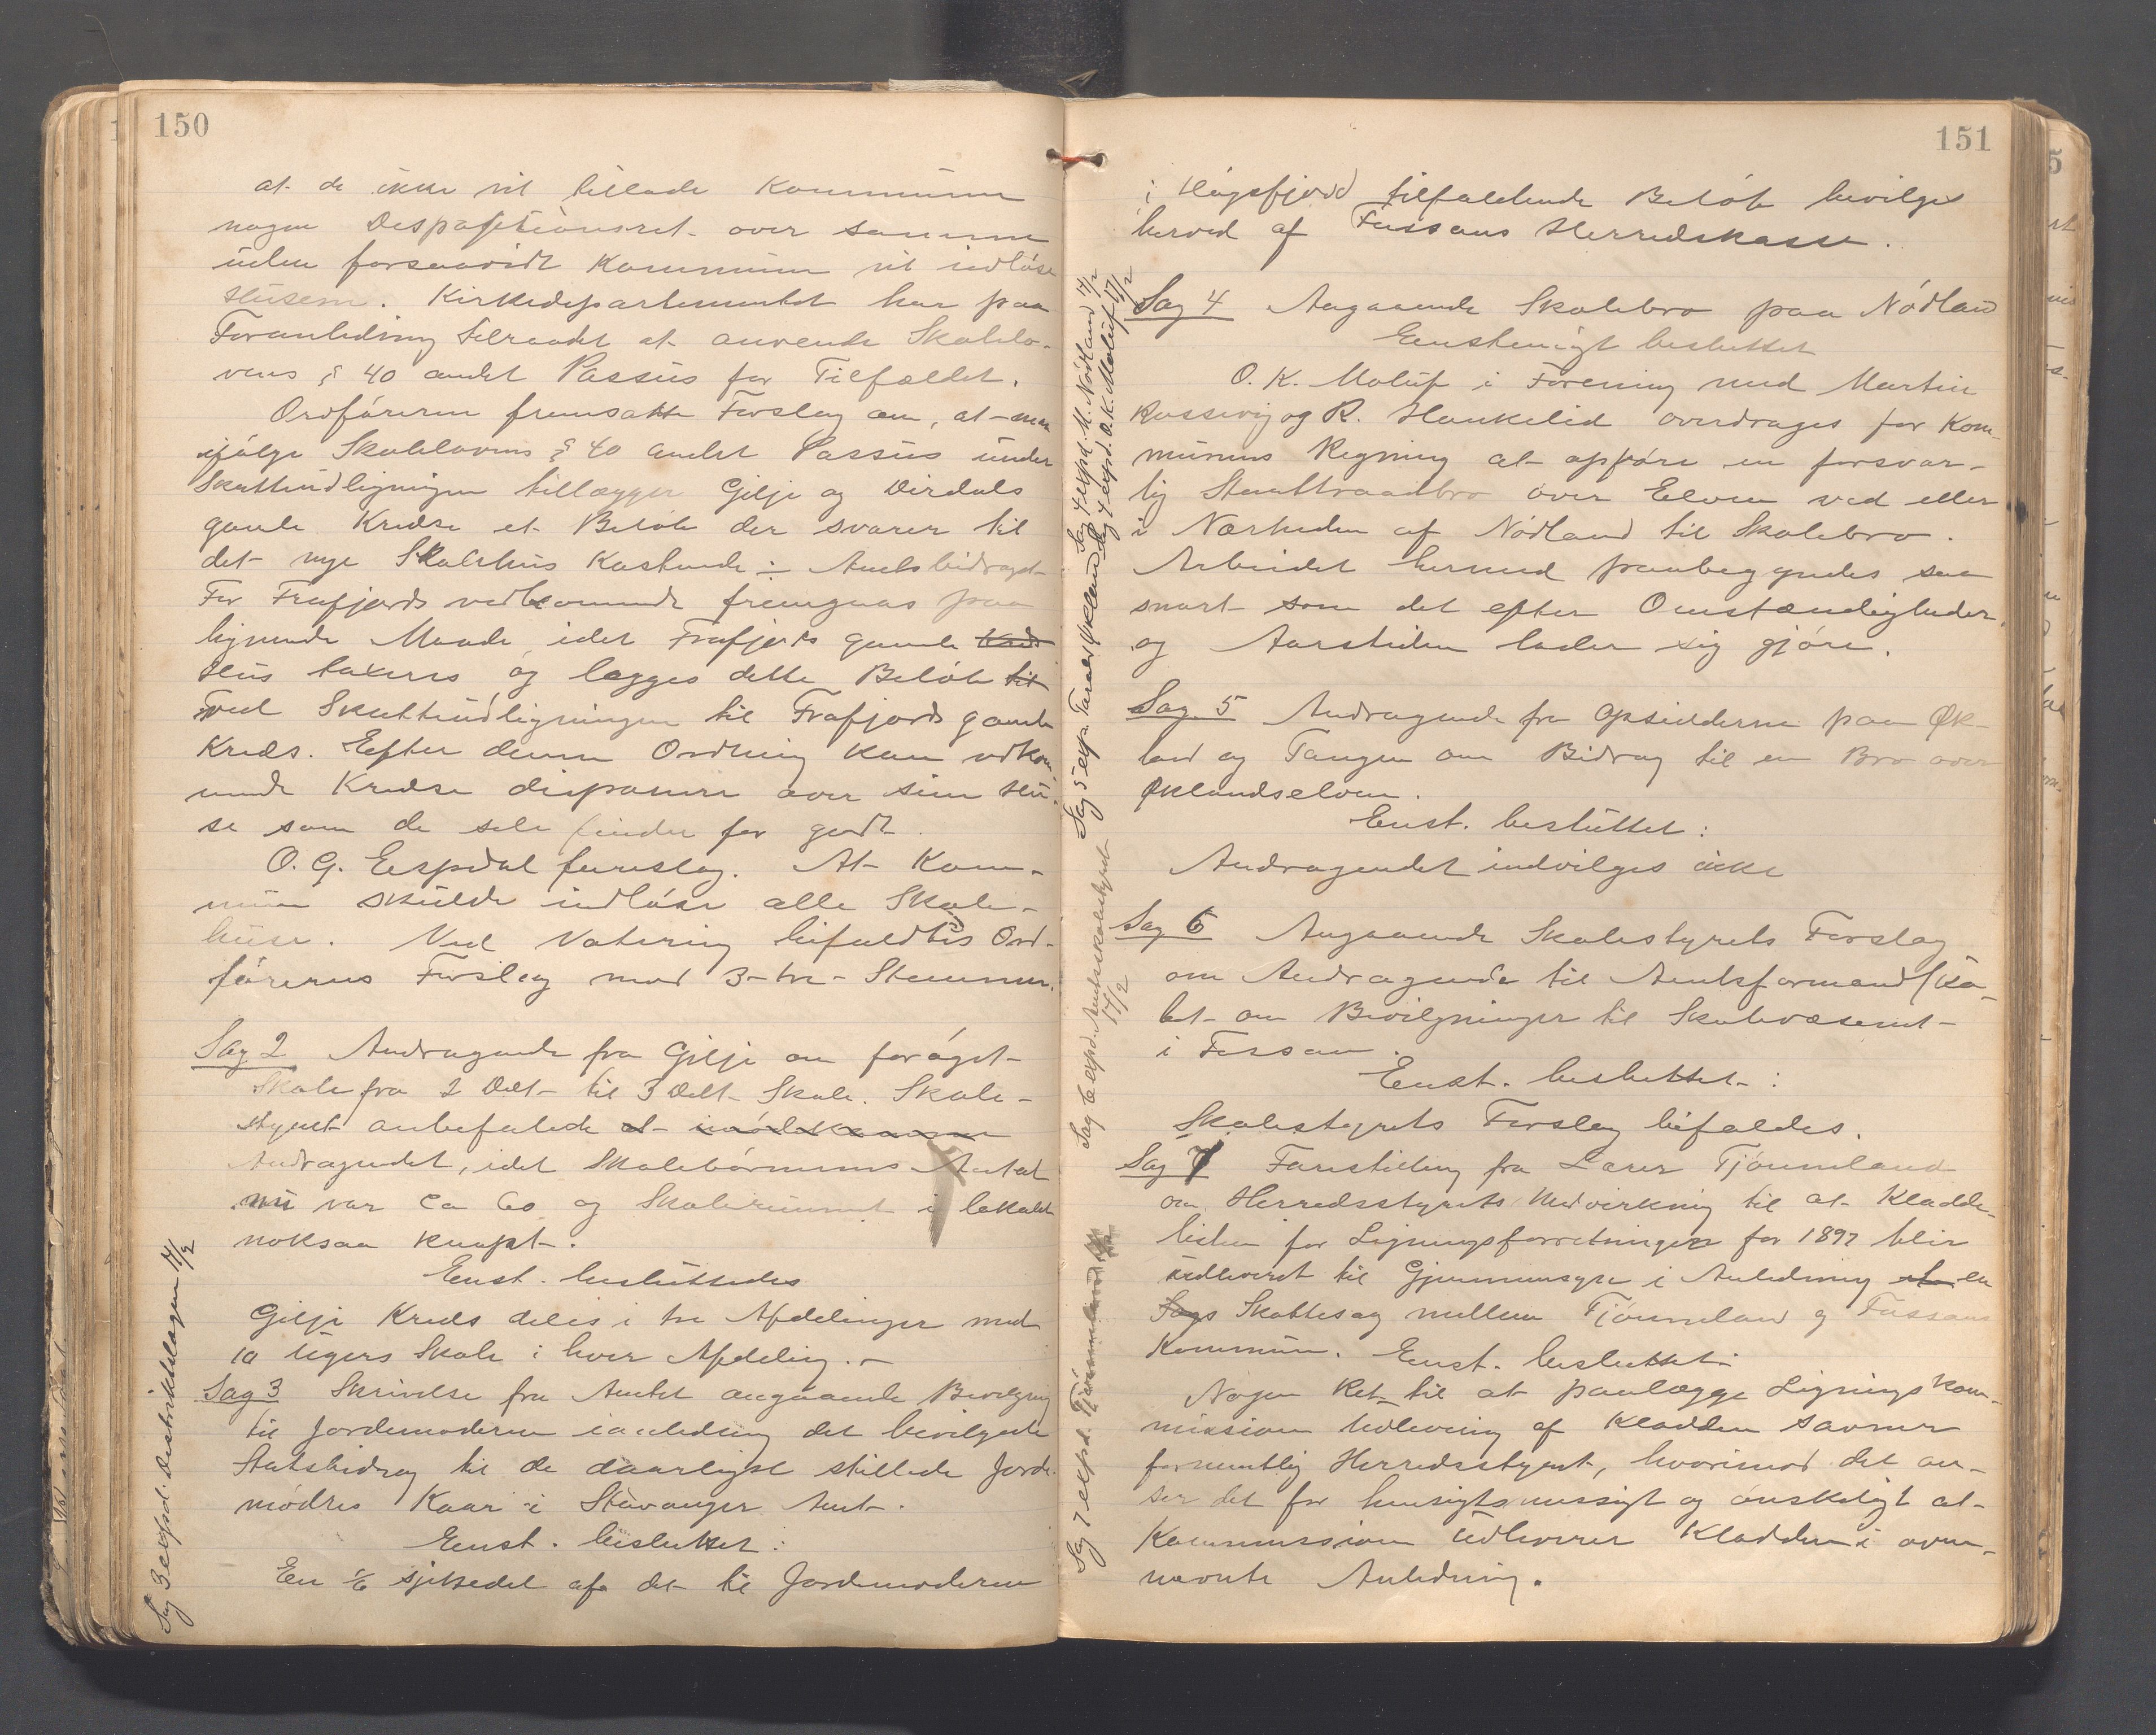 150
at de ikke vil tillade Kommunen
nogen Despositionsret over samme
uden forsaavidt Kommunen vil indløse
Husene. Kirkedepartementet har paa
Foranledning tilraadet at anvende Skolelo-
vens § 40 andet Passus for Tilfældet.
Ordføreren fremsatte Forslag om, at man
ifølge Skolelovens § 40 andet Passus under
Skatteudligningen tillægger Gilje og Dirdals
gamle Kredse et Beløb der svarer til
det nye Skolehus Kostende ÷ Amtsbidraget
For Frafjords vedkommende fremgaas paa
lignende Maade, idet Frafjords gamle Kreds
Hus taxeres og lægges dette Beløb til
ved Skatteudligningen til Frafjords gamle
Kreds. Efter denne Ordning kan vedkom-
mende Kredse disponere over sine Hu-
se som de selv finder for godt.
O. G. Espedal foreslog. At Kom-
mune skulde indløse alle Skole-
huse. Ved Votering bifaldtes Ord-
førerens Forslag mod 3-tre-Stemmer.
Sag 2 Andragende fra Gilje om forøget
Skole fra 2 Delt til 3 Delt Skole. Skole-
styret anbefalede at imødekomme
Andragendet, idet Skolebørnenes Antal
nu var ca 60 og Skolerummet i lokalet
noksaa knapt.
Enst. besluttedes
Gilje Kreds deles i tre Afdelinger med
10 Ugers Skole i hver Afdeling.-
Sag 3 Skrivelse fra Amtet angaaende Bevilgning
til Jordemoderen ianledning det bevilgede
Statsbidrag til de daarligst stillede Jorde-
mødres Kaar i Stavanger Amt.
Enst. besluttet:
En 1/6 sjettedel af det til Jordemoderen
Sag 3 expd. Distriktslægen 17/2
151
i Høgsfjord tilfaldende Beløb bevilges
herved af Fossans Herredskasse.
Sag 4 Angaaende Skolebro paa Nødland
Eenstemigt besluttet
O. K. Maluf i Forening med Martin
Rossevig og R. Haukelid overdrages for Kom-
munens Regning at opføre en forsvar-
lig Staaltraadbro over Elven ved eller
i Nærheden af Nødland til Skolebro.
Arbeidet hermed paabegyndes saa
snart som det efter Omstændigheder
og Aarstiden lader sig gjøre.
Sag 5 Andragende fra Opsidderne paa Øk-
land og Tangen om Bidrag til en Bro over
Øklandselven.
Enst. besluttet:
Andragendet indvilges ikke
Sag 6 Angaaende Skolestyrets Forslag
om Andragende til Amtsformandska-
bet om Bevilgninger til Skolevæsenet
i Fossan.
Enst. besluttet:
Skolestyrets Forslag bifaldes.
Sag 7 Forestilling fra Lærer Tjømmeland
om Herredsstyrets Medvirkning til at Kladde-
listen for Ligningsforretningen for 1897 blir
udleveret til Gjennemsyn i Anledning en
Sags Skattesag mellem Tjømmeland og Fossans
Kommune. Enst. besluttet
Nogen Ret til at paalægge Ligningskom-
missionen Udlevering af Kladden savner
formentlig Herredsstyret, hvorimod det an-
ser det for hensigtsmæssigt og ønskeligt at
Kommissionen Udleverer Kladden i oven-
nævnte Anledning.
Sag 4 expd. M. Nødland 17/2
Sag 4 expd. O. K. Maluf 17/2
Sag 5 exp. Økland
Sag 6 expd. Amtsskolestyret 17/2
Sag 7 expd. Tjømmeland